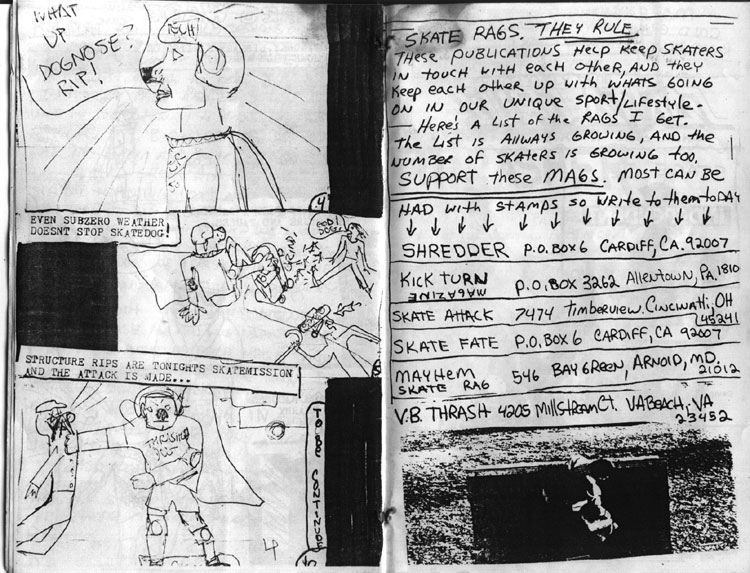 WHAT
UP
DOGNOSE?
RIP!
TECH
4
EVEN SUBZERO WEATHER
DOESNT STOP SKATEDOG!
STRUCTURE RIPS ARE TONIGHTS SKATEMISSION
AND THE ATTACK IS MADE...
THRASHER
TO BE CONTINUED
SKATE RAGS. THEY RULE.
THESE PUBLICATIONS HELP KEEP SKATERS
IN TOUCH WITH EACH OTHER, AND THEY
KEEP EACH OTHER UP WITH WHATS GOING
ON IN OUR UNIQUE SPORT/LIFESTYLE.
— HERE'S A LIST OF THE RAGS I GET.
THE LIST IS AllWAYS GROWING, AND THE
NUMBER OF SKATERS IS GROWING TOO.
SUPPORT THESE MAGS. MOST CAN BE
HAD WITH STAMPS SO WRITE TO THEM TODAY
SHREDDER P.O. BOX 6 CARDIFF, CA. 92007
KICK TURN MAGAZINE P.O. BOX 3262 Allentown, PA. 1810
SKATE ATTACK 7474 TIMBERVIEW. CINCINATTI, OH
45241
SKATE FATE P.O. BOX 6 CARDIFF, CA 92007
MAYHEM SKATE RAG 546 BAY GREEN, ARNOLD, MD.
21012
V.B. THRASH 4205 MillSTREAM CT. VA BEACH, VA
23452